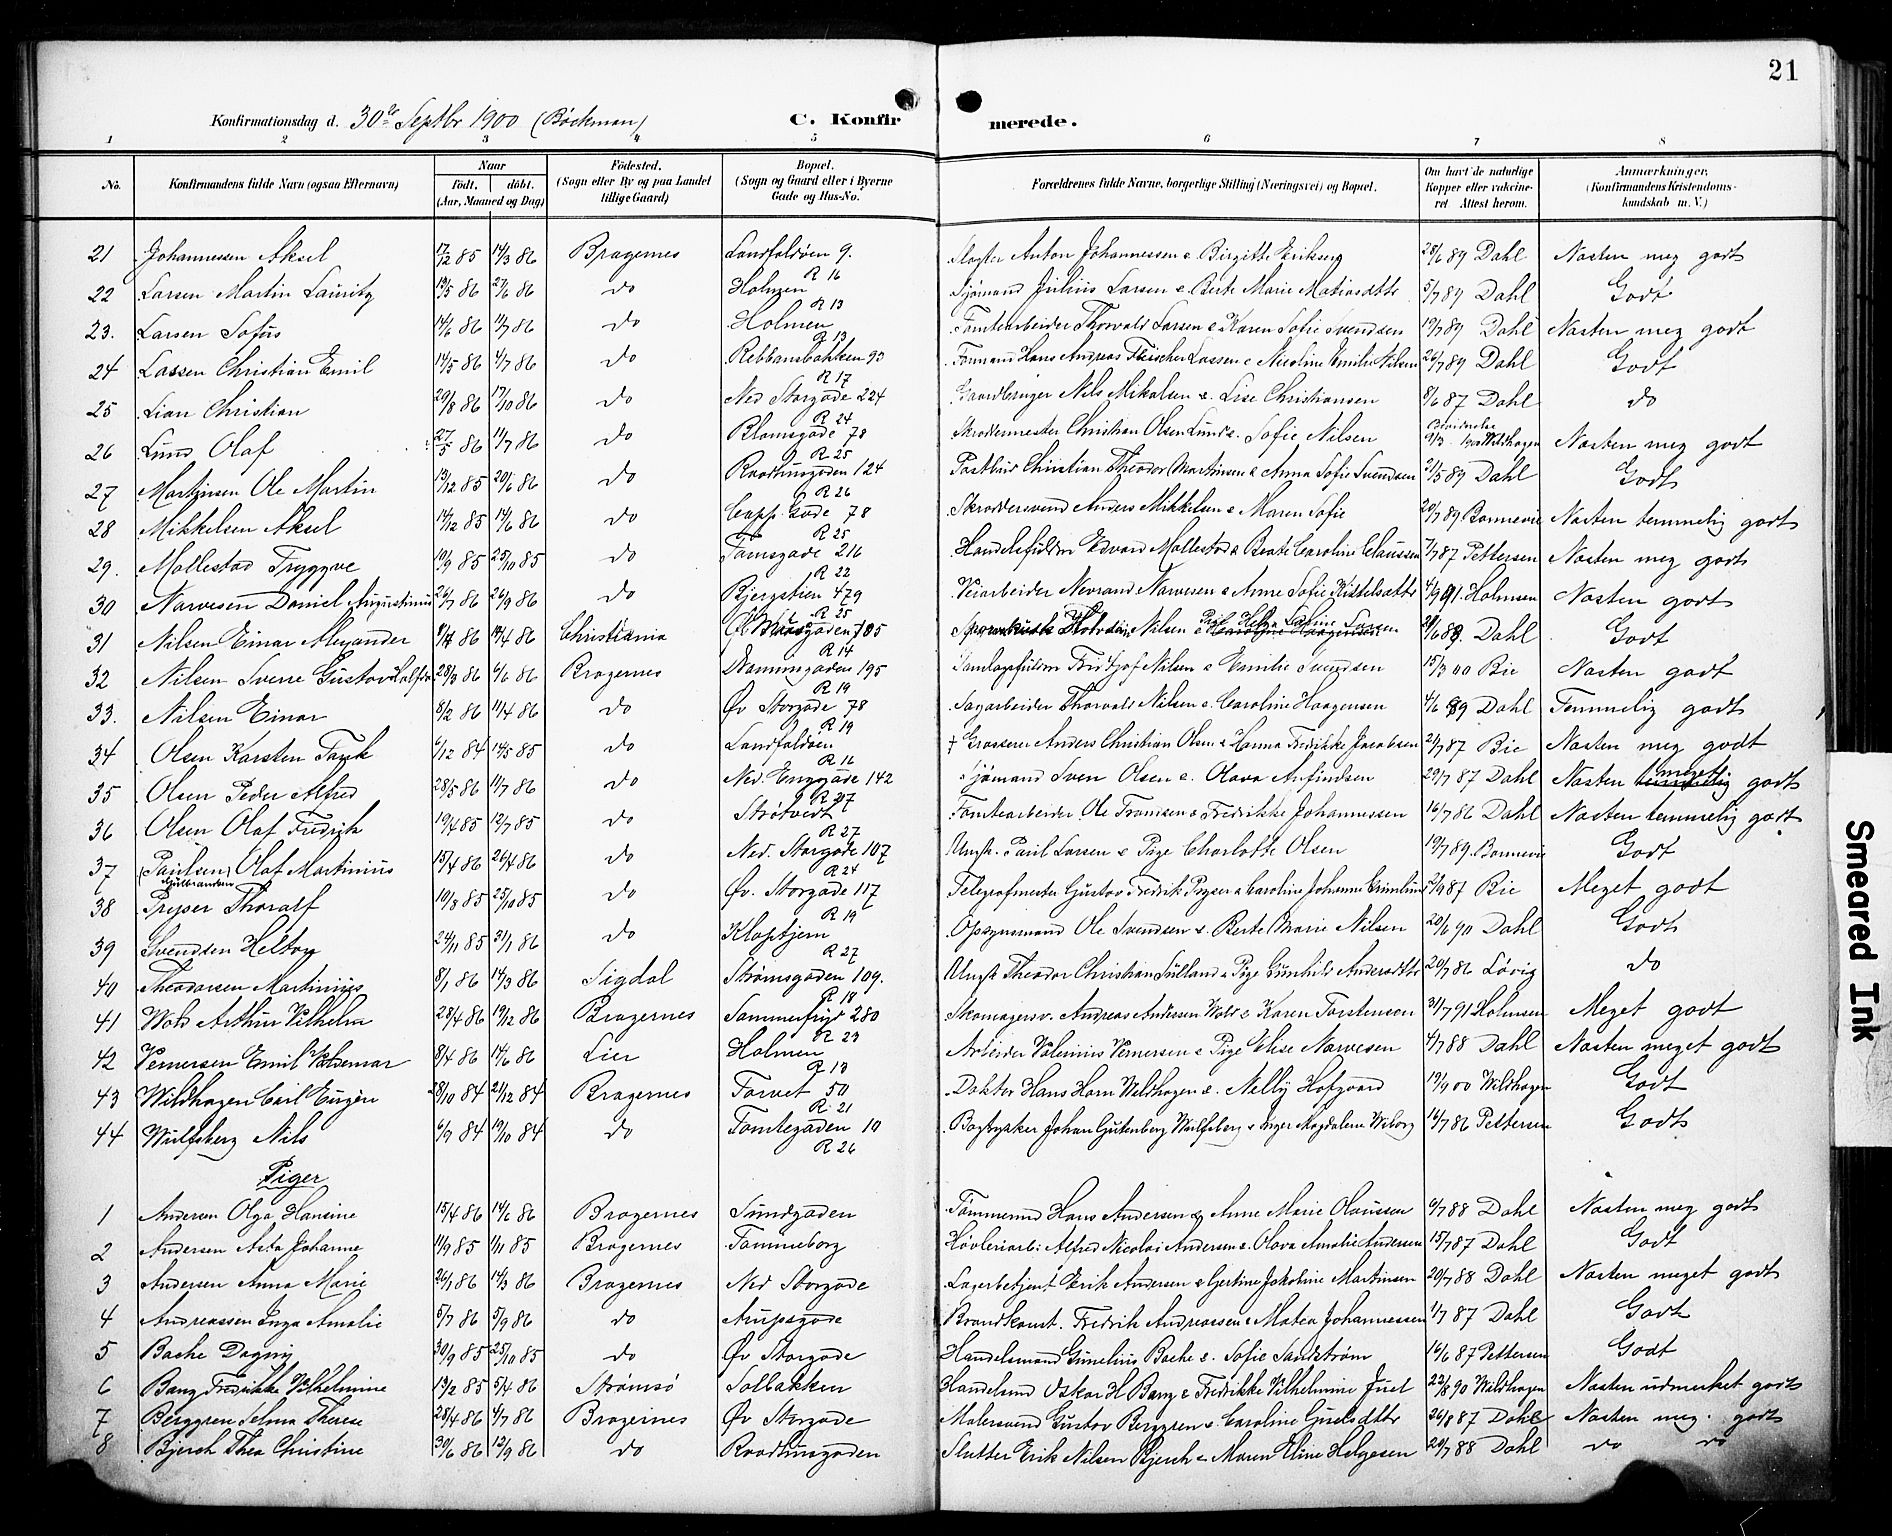 21
Konfirmationsdag d. 30te Septbr 1900 (Böckman)
C. Konfirmerede.
1 2 3 4 5 6 7 8
No. Konfirmandens fulde Navn (ogsaa Efternavn) Naar Födt. döbt. (Aar, Maaned og Dag) Födested. (Sogn eller By og paa Landet tillige Gaard) Bopæl. (Sogn og Gaard eller i Byerne Gade og Hus-No. Forældrenes fulde Navne, borgerlige Stilling (Næringsvei) og Bopæl. Om havt de naturlige Kopper eller vaccineret Attest herom. Anmærkninger, (Konfirmandens Kristendomskundskab m. V.)
21 Johannessen Aksel 17/12 85 14/3 86 Bragernes Landfaldöen 9. R 16 Anton Johannessen & Birgitte Eriksen 28/6 89 Dahl Nasten meg godt
22 Larsen Martin Lauritz 19/5 86 27/6 86 do Holmen R 13 Sjömand Julius Larsen & Berte Marie Matiasdttr 5/7 89 Dahl Godt
23. Larsen Sofus 14/6 86 11/7 86 do Holmen R 13 Tomtearbeider Thorvald Larsen & Karen Sofie Svendsen 19/7 89 Dahl Nasten meg godt
24 Lassen Christian Emil 14/5 86 4/7 86 do Rebbansbakken 93 R 17 Formand Hans Andreas Fleischer Lassen & Nicoline Emilie Nilsen 26/7 89 Dahl Godt
25 Lian Christian 29/8 86 17/10 86 do Ned Storgade 224 R 24 Nils Mikalsen & Lise Christiansen 8/6 87 Dahl do
26 Lund Olaf 27/5 86 11/7 86 do Blomsgade 78 R 25 Skræddermester Christian Olsen Lund & Sofie Nilsen Wildhagen Nasten meg godt
27 Martinsen Ole Martin 13/12 85 20/6 86 do Raadhusgaden 124 R 26 Postbud Christian Theodor Martinsen & Anna Sofie Svendsen 21/5 89 Dahl Godt
28 Mikkelsen Aksel 14/12 85 14/6 86 do Capp. Gade 78 R 25 Skræddersvend Anders Mikkelsen & Maren Sofie 20/7 89 Bonnevie Nasten temmelig godt
29. Mollestad Tryggve 19/9 85 25/10 85 do Tomtegade 216 R 22 Handelsfuldm Edvard Mollestad & Beate Caroline Claussen 7/7 87 Pettersen Nasten meg godt
30 Narvesen Daniel Augustinus 26/7 86 26/9 86 do Bjergstien 479 R 25 Veiarbeider Nevrand Narvesen & Anne Sofie Kittelsdttr 4/9 91. Holmsen Nasten godt
31 Nilsen Einar Alexander Christiania R 14 Nilsen & Pige Helga Sofine Larsen Dahl Godt
32 Nilsen Sverre Gustav Halfdan 28/3 86 6/6 86 Bragernes Dronninggaden 195 R 19 Samlagsfuldm Fridtjof Nilsen & Emilie Svendsen 15/3 00 Bie Nasten godt
33. Nilsen Einar 8/2 86 11/4 86 do Øv Storgade 78 R 19 Sagarbeider Thorvald Nilsen & Caroline Haagensen 4/6 89 Dahl Temmelig godt
34 Olsen Karsten Falck 6/12 84 14/5 85 do Landfaldöen R 16 † Grosserer Anders Christian Olsen & Hanna Fredrikke Jacobsen 21/7 87 Bie Nasten meg godt
35 Olsen Peder Alfred 28/5 86 11/7 86 do Ned. Enggade 142 R 27 Sjömand Sven Olsen & Olava Anfindsen 29/7 87 Dahl Nasten temmelig meget godt
36 Olsen Olaf Fredrik 19/4 85 12/7 85 do Strøtvedt R 27 Tomtearbeider Ole Framsen & Fredrikke Johannessen 16/7 86 Dahl Nasten temmelig godt
37 (Paulsen) Olaf Martinius Gulbrandsen 15/4 86 26/4 86 do Ned. Storgade 107 R 24 Ungk. Paul Larsen & Pige Charlotte Olsen 19/7 89. Bonnevie Godt
38 Pryser Thoralf 10/8 85 25/10 85 do Øv. Storgade 117 R 19 Telegrafmester Gustav Fredrik Pryser & Caroline Johanne Grimlund 21/9 87 Bie Meget godt
39 Svendsen Helton 24/11 85 31/1 86 do Kloptjern R 27 Opsynsmand Ole Svendsen & Berte Marie Nilsen 20/6 90 Dahl Godt
40 Theodorsen Martinius 8/1 86 14/3 86 Sigdal Strømsgaden 109. R 18 Ungk Theodor Christian Sulland & Pige Gunhild Andersdttr 20/7 86 Lövig do
41 Wold Arthur Vilhelm 28/4 86 19/12 86 Bragernes Sommerfryd 280 R 23 Skomagersv. Andreas Andersen Wold & Karen Torstensen 31/7 91 Holmsen Meget godt
42 Vernersen Emil Valdemar 8/4 86 14/6 86 Lier Holmen R 13 Arbeider Valenius Vernersen & Pige Elise Narvesen 4/7 88 Dahl Nasten meget godt
43 Wildhagen Carl Eugen 28/10 84 21/12 84 Bragernes Torvet 50 R. 21 Doktor Hans Horn Wildhagen & Nelly Hofgaard 19/9 00 Wildhagen Godt
44 Wulfsberg Nils 6/9 84 19/10 84 do Tomtegaden 10 R 26 Bogtrykker Johan Gutenberg Wulfsberg & Inger Magdalene Wiborg 16/7 86 Pettersen Godt
Piger
1 Andersen Olga Hansine 15/4 86 14/6 86 Bragernes Sundgaden Tömmermd Hans Andersen & Anne Marie Olaussen 6/7 88 Dahl Nasten meg godt
2 Andersen Asta Johanne 11/9 85 1/11 85 Bragernes Tamineborg Høvleriarb: Alfred Nicolai Andersen & Olava Amalie Andersen 15/7 87 Dahl Godt
3 Andersen Anna Marie 26/1 86 14/3 86 Bragernes Ned Storgade Lagerbetjent Erik Andersen & Gertine Jakobine Martinsen 20/7 88 Dahl Nasten meget godt
4 Andreassen Inga Amalie 5/7 86 5/9 86 do Brandkonst. Fredrik Andreassen & Matea Johannessen 1/7 87 Dahl Godt
5 Bache Dagny 30/9 85 25/10 85 do Øv Storgade Handelsmand Gunelius Bache & Sofie Sandström 16/6 87 Pettersen Godt
6 Bang Fredrikke Vilhelmine 19/2 85 5/4 86 Strømsö Solbakken Handelsmd Oskar H Bang & Fredrikke Vilhelmine Juel 22/8 90 Wildhagen Nasten udmerket godt
7 Berggren Selma Therese 28/4 86 4/7 86 Bragernes Øv Storgade Malersvend Gustav Berggren & Caroline 26/8 87 Dahl Nasten meg. godt
8 Bjerch Thea Christine 30/6 86 12/9 86 do Raadhusgaden Slagter Erik Nilsen Bjerch & Maren Eline Helgesen 20/7 88 Dahl do do
Smeared Ink